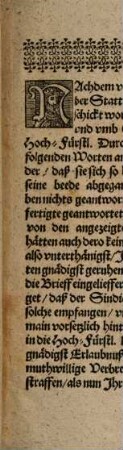 NAchdem v
ber Statt
schickt wor
vnd vmb
Hoch-Fürstl. Durc
folgenden Worten a
der / daß sie sich so
seine beede abgegan
ben nichts geantwor
fertigte geantwortet
von den angezeigte
hätten auch dero kein
also vnterthänigst / J
ten gnädigst geruhen
die Brieff eingelieffer
get / daß der Sindic
solche empfangen / v
main vorsetzlich hint
in die Hoch-Fürstl. H
gnädigst Erlaubnuß
muthwillige Verbre
straffen / als nun Jhr